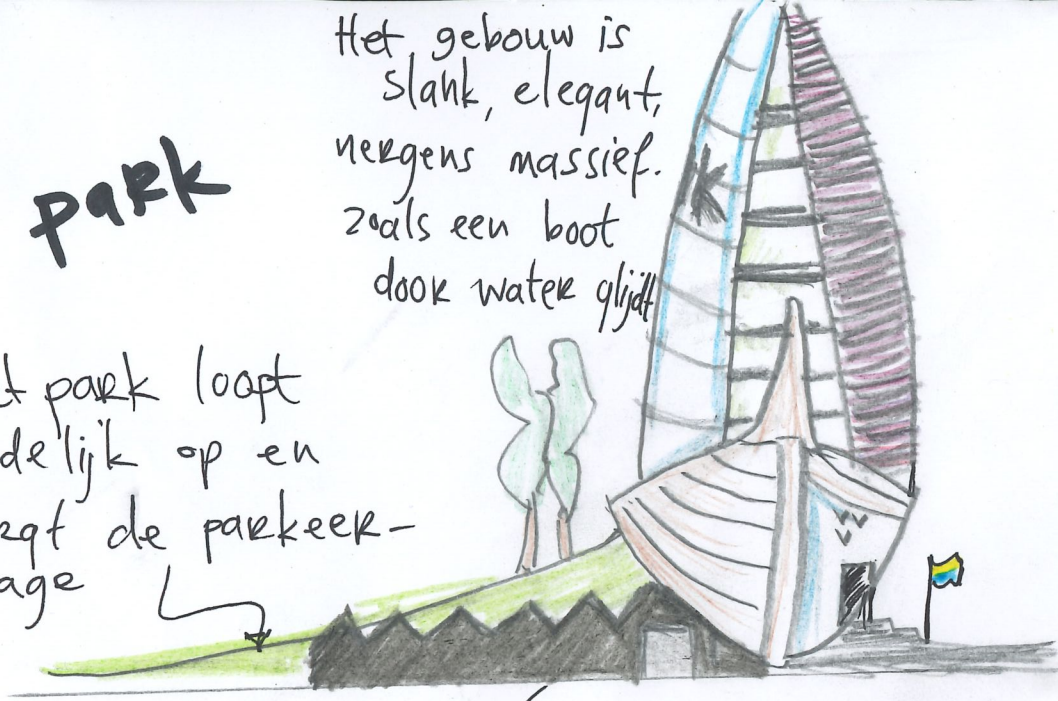 Het gebouw is
slank, elegant,
nergens massief.
zoals een boot
door water glijdt
park
t park loopt
delijk op en
rgt de parkeer-
age
K